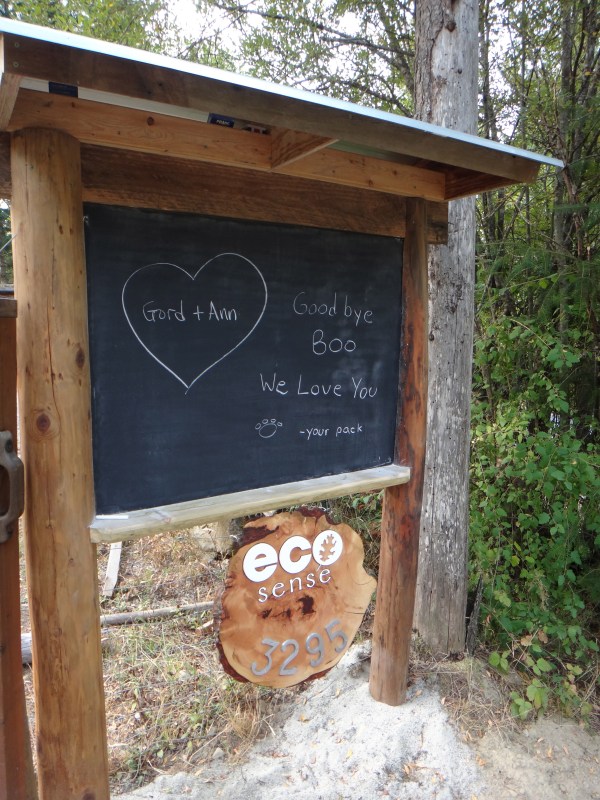 Gord + Ann
Goodbye
Boo
We Love You
-your pack
eco
sense
3295